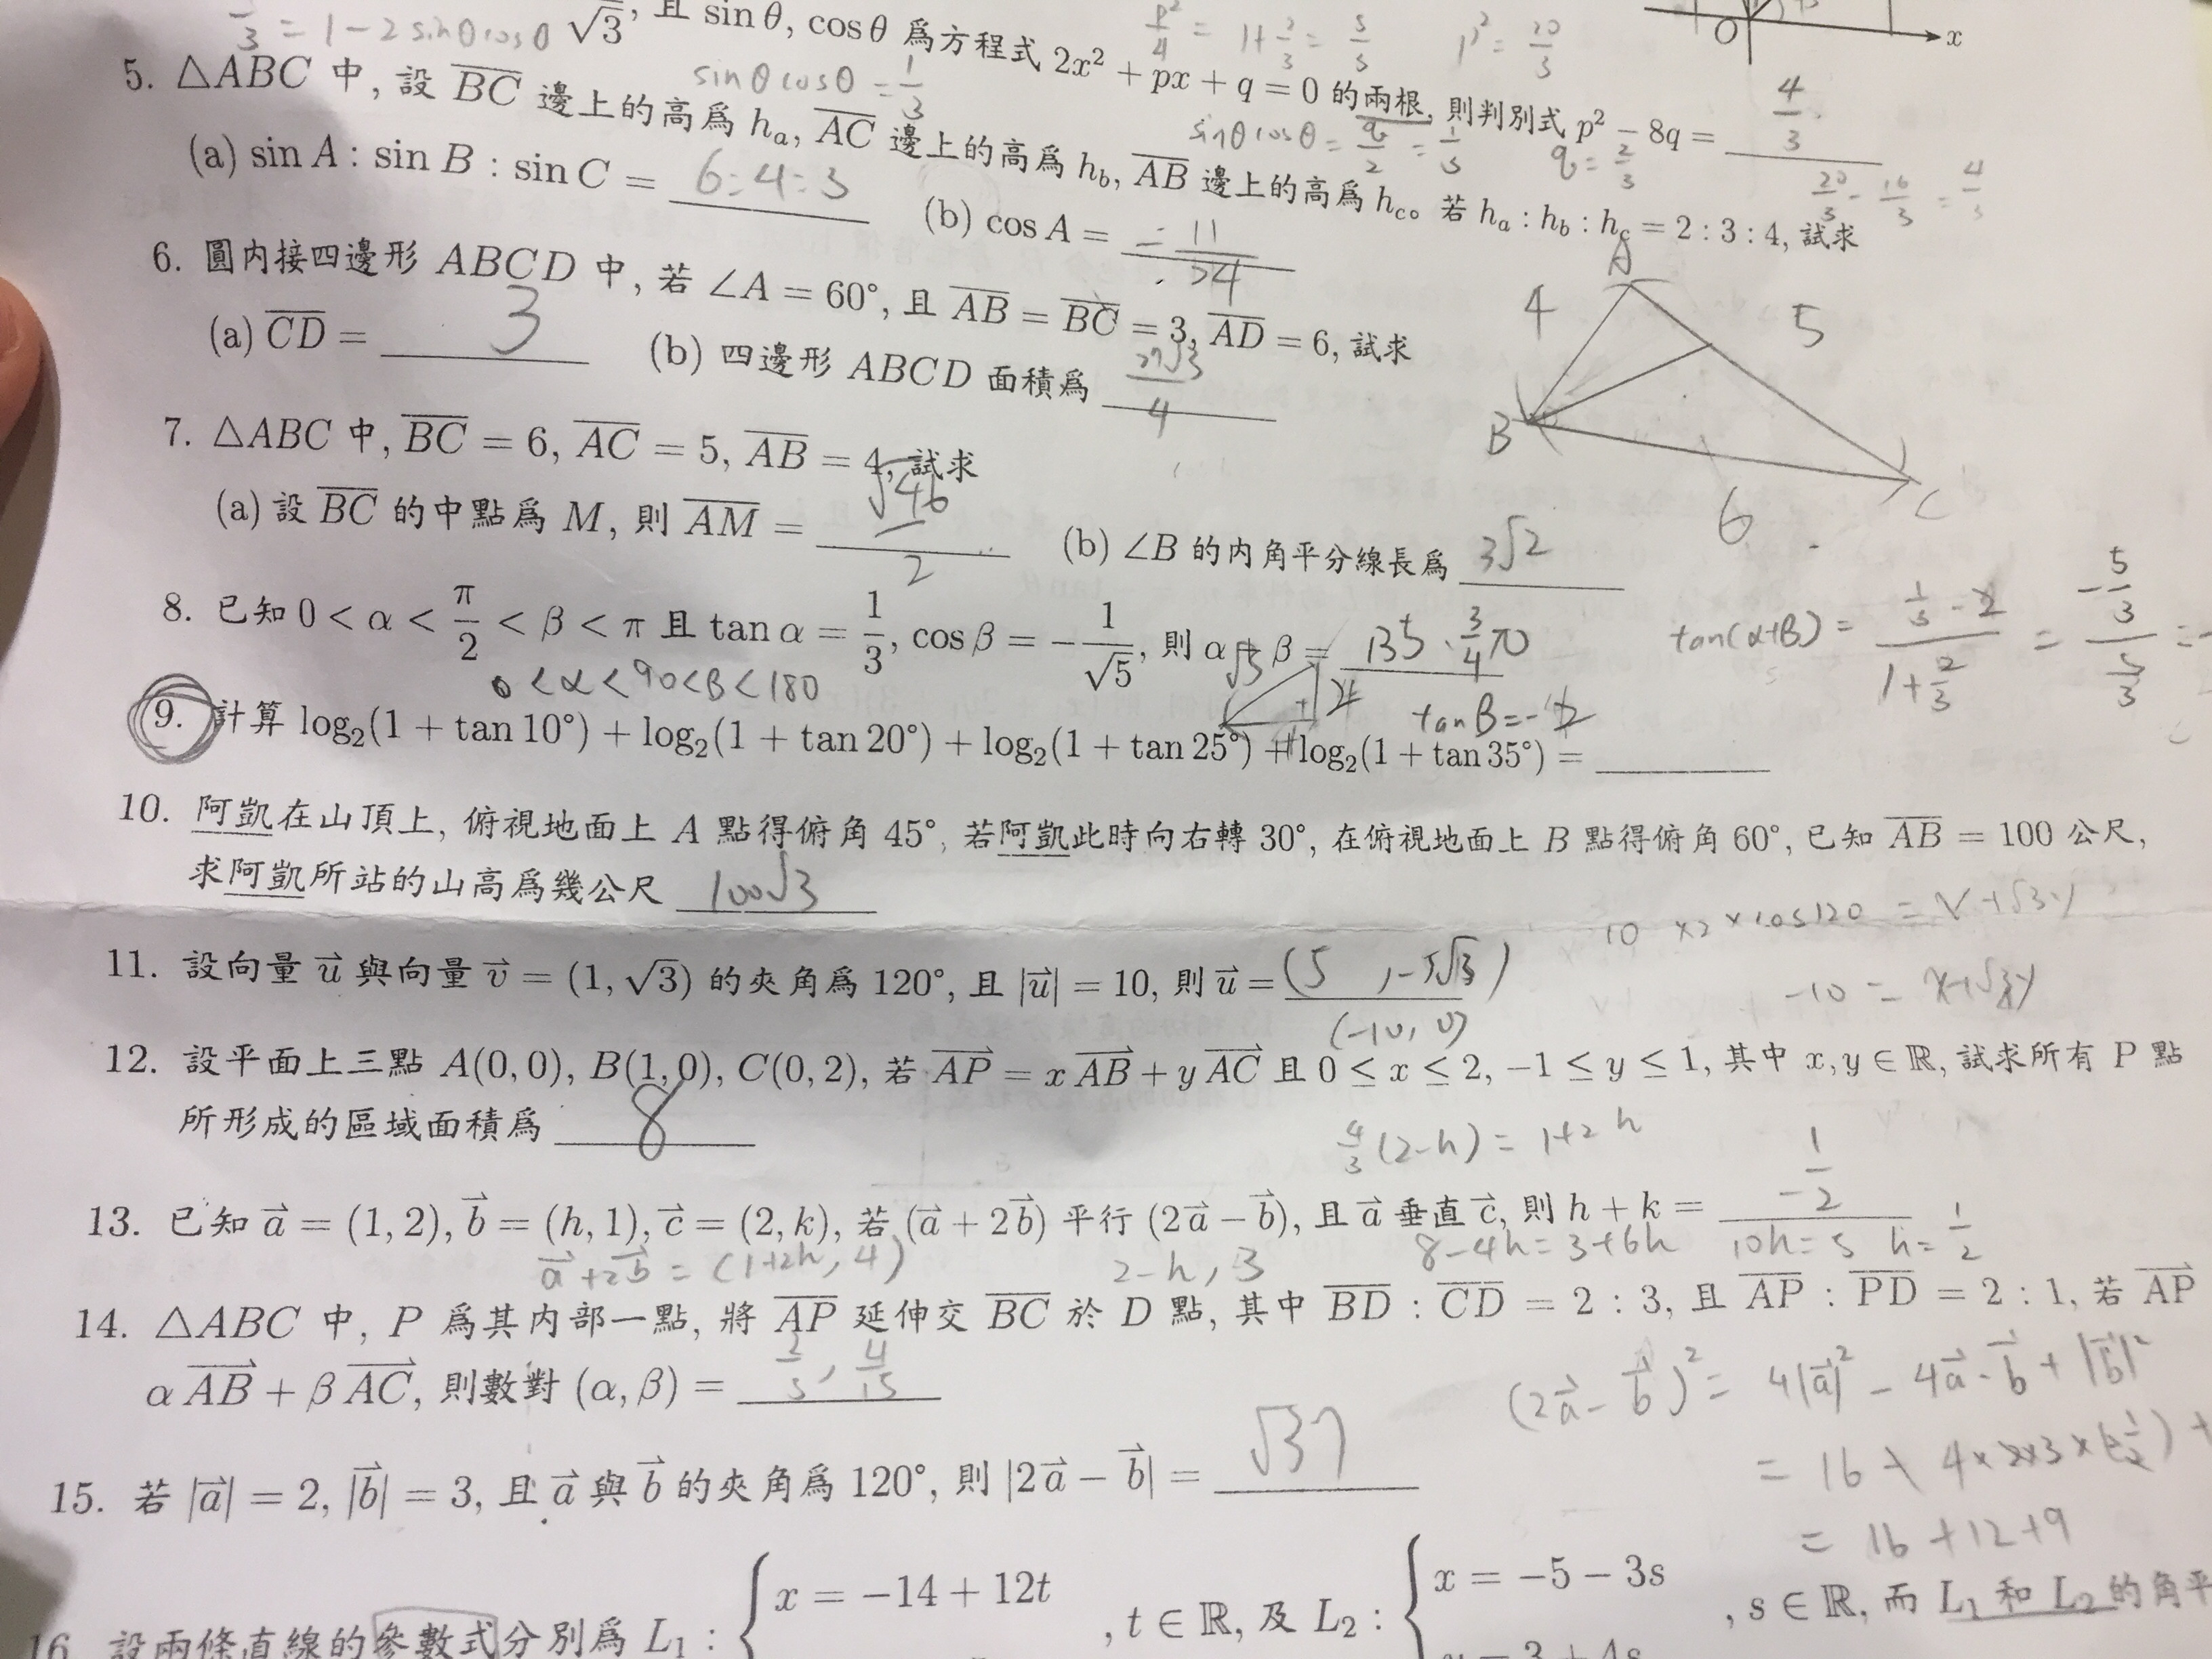 1/3 = 1 - 2 sinθcosθ √3, 且 sin θ, cos θ 爲方程式 2x² + px + q = 0 的兩根, 則判別式 p² − 8q = 4/3
p²/4 = 1 + 2/3 = 5/3 p² = 20/3
O x
sinθcosθ = 1/3
sinθcosθ = q/2 = 1/3 q = 2/3
20/3 - 16/3 = 4/3
5. △ABC 中, 設 BC 邊上的高爲 hₐ, AC 邊上的高爲 h_b, AB 邊上的高爲 h_c。若 hₐ : h_b : h_c = 2 : 3 : 4, 試求
(a) sin A : sin B : sin C = 6:4:3 (b) cos A = -11/24
6. 圓內接四邊形 ABCD 中, 若 ∠A = 60°, 且 AB = BC = 3, AD = 6, 試求
(a) CD = 3 (b) 四邊形 ABCD 面積爲 27√3/4
A
4 5
B
6 C
7. △ABC 中, BC = 6, AC = 5, AB = 4, 試求
(a) 設 BC 的中點爲 M, 則 AM = √46/2 (b) ∠B 的內角平分線長爲 3√2
8. 已知 0 < α < π/2 < β < π 且 tan α = 1/3, cos β = −1/√5, 則 α + β = 135 · 3/4 π
tan(α+β) = (1/3 - 2)/(1 + 2/3) = (-5/3)/(5/3) = -
0 < α < 90 < β < 180
√5 2 tan β = -2
9. 計算 log₂(1 + tan 10°) + log₂(1 + tan 20°) + log₂(1 + tan 25°) + log₂(1 + tan 35°) =
10. 阿凱在山頂上, 俯視地面上 A 點得俯角 45°, 若阿凱此時向右轉 30°, 在俯視地面上 B 點得俯角 60°, 已知 AB = 100 公尺,
求阿凱所站的山高爲幾公尺 100√3
10 × 2 × cos120 = x + √3y
11. 設向量 u⃗ 與向量 v⃗ = (1, √3) 的夾角爲 120°, 且 |u⃗| = 10, 則 u⃗ = (5, -5√3)
-10 = x + √3y
(-10, 0)
12. 設平面上三點 A(0, 0), B(1, 0), C(0, 2), 若 AP⃗ = x AB⃗ + y AC⃗ 且 0 ≤ x ≤ 2, −1 ≤ y ≤ 1, 其中 x, y ∈ ℝ, 試求所有 P 點
所形成的區域面積爲 8
4/3 (2-h) = 1+2h
13. 已知 a⃗ = (1, 2), b⃗ = (h, 1), c⃗ = (2, k), 若 (a⃗ + 2b⃗) 平行 (2a⃗ − b⃗), 且 a⃗ 垂直 c⃗, 則 h + k = -1/2
a⃗ + 2b⃗ = (1+2h, 4) 2-h, 3 8-4h = 3+6h 10h = 5 h = 1/2
14. △ABC 中, P 爲其內部一點, 將 AP 延伸交 BC 於 D 點, 其中 BD : CD = 2 : 3, 且 AP : PD = 2 : 1, 若 AP⃗
α AB⃗ + β AC⃗, 則數對 (α, β) = 2/5, 4/15
(2a⃗ - b⃗)² = 4|a⃗|² - 4a⃗·b⃗ + |b⃗|²
15. 若 |a⃗| = 2, |b⃗| = 3, 且 a⃗ 與 b⃗ 的夾角爲 120°, 則 |2a⃗ − b⃗| = √37
= 16 - 4×2×3×(-1/2) +
= 16 + 12 + 9
16. 設兩條直線的參數式分別爲 L₁ : { x = −14 + 12t , t ∈ ℝ, 及 L₂ : { x = −5 − 3s , s ∈ ℝ, 而 L₁ 和 L₂ 的角平
y = 3 + 4s